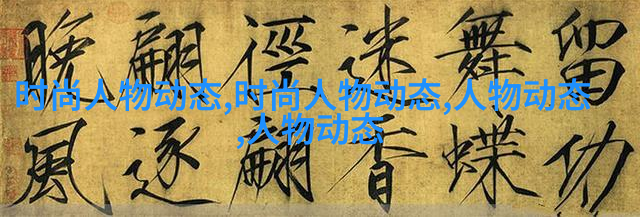 时尚人物动态,时尚人物动态,人物动态
,人物动态
留功
舞蝶
迷香
徑翩
翩逐
晚風